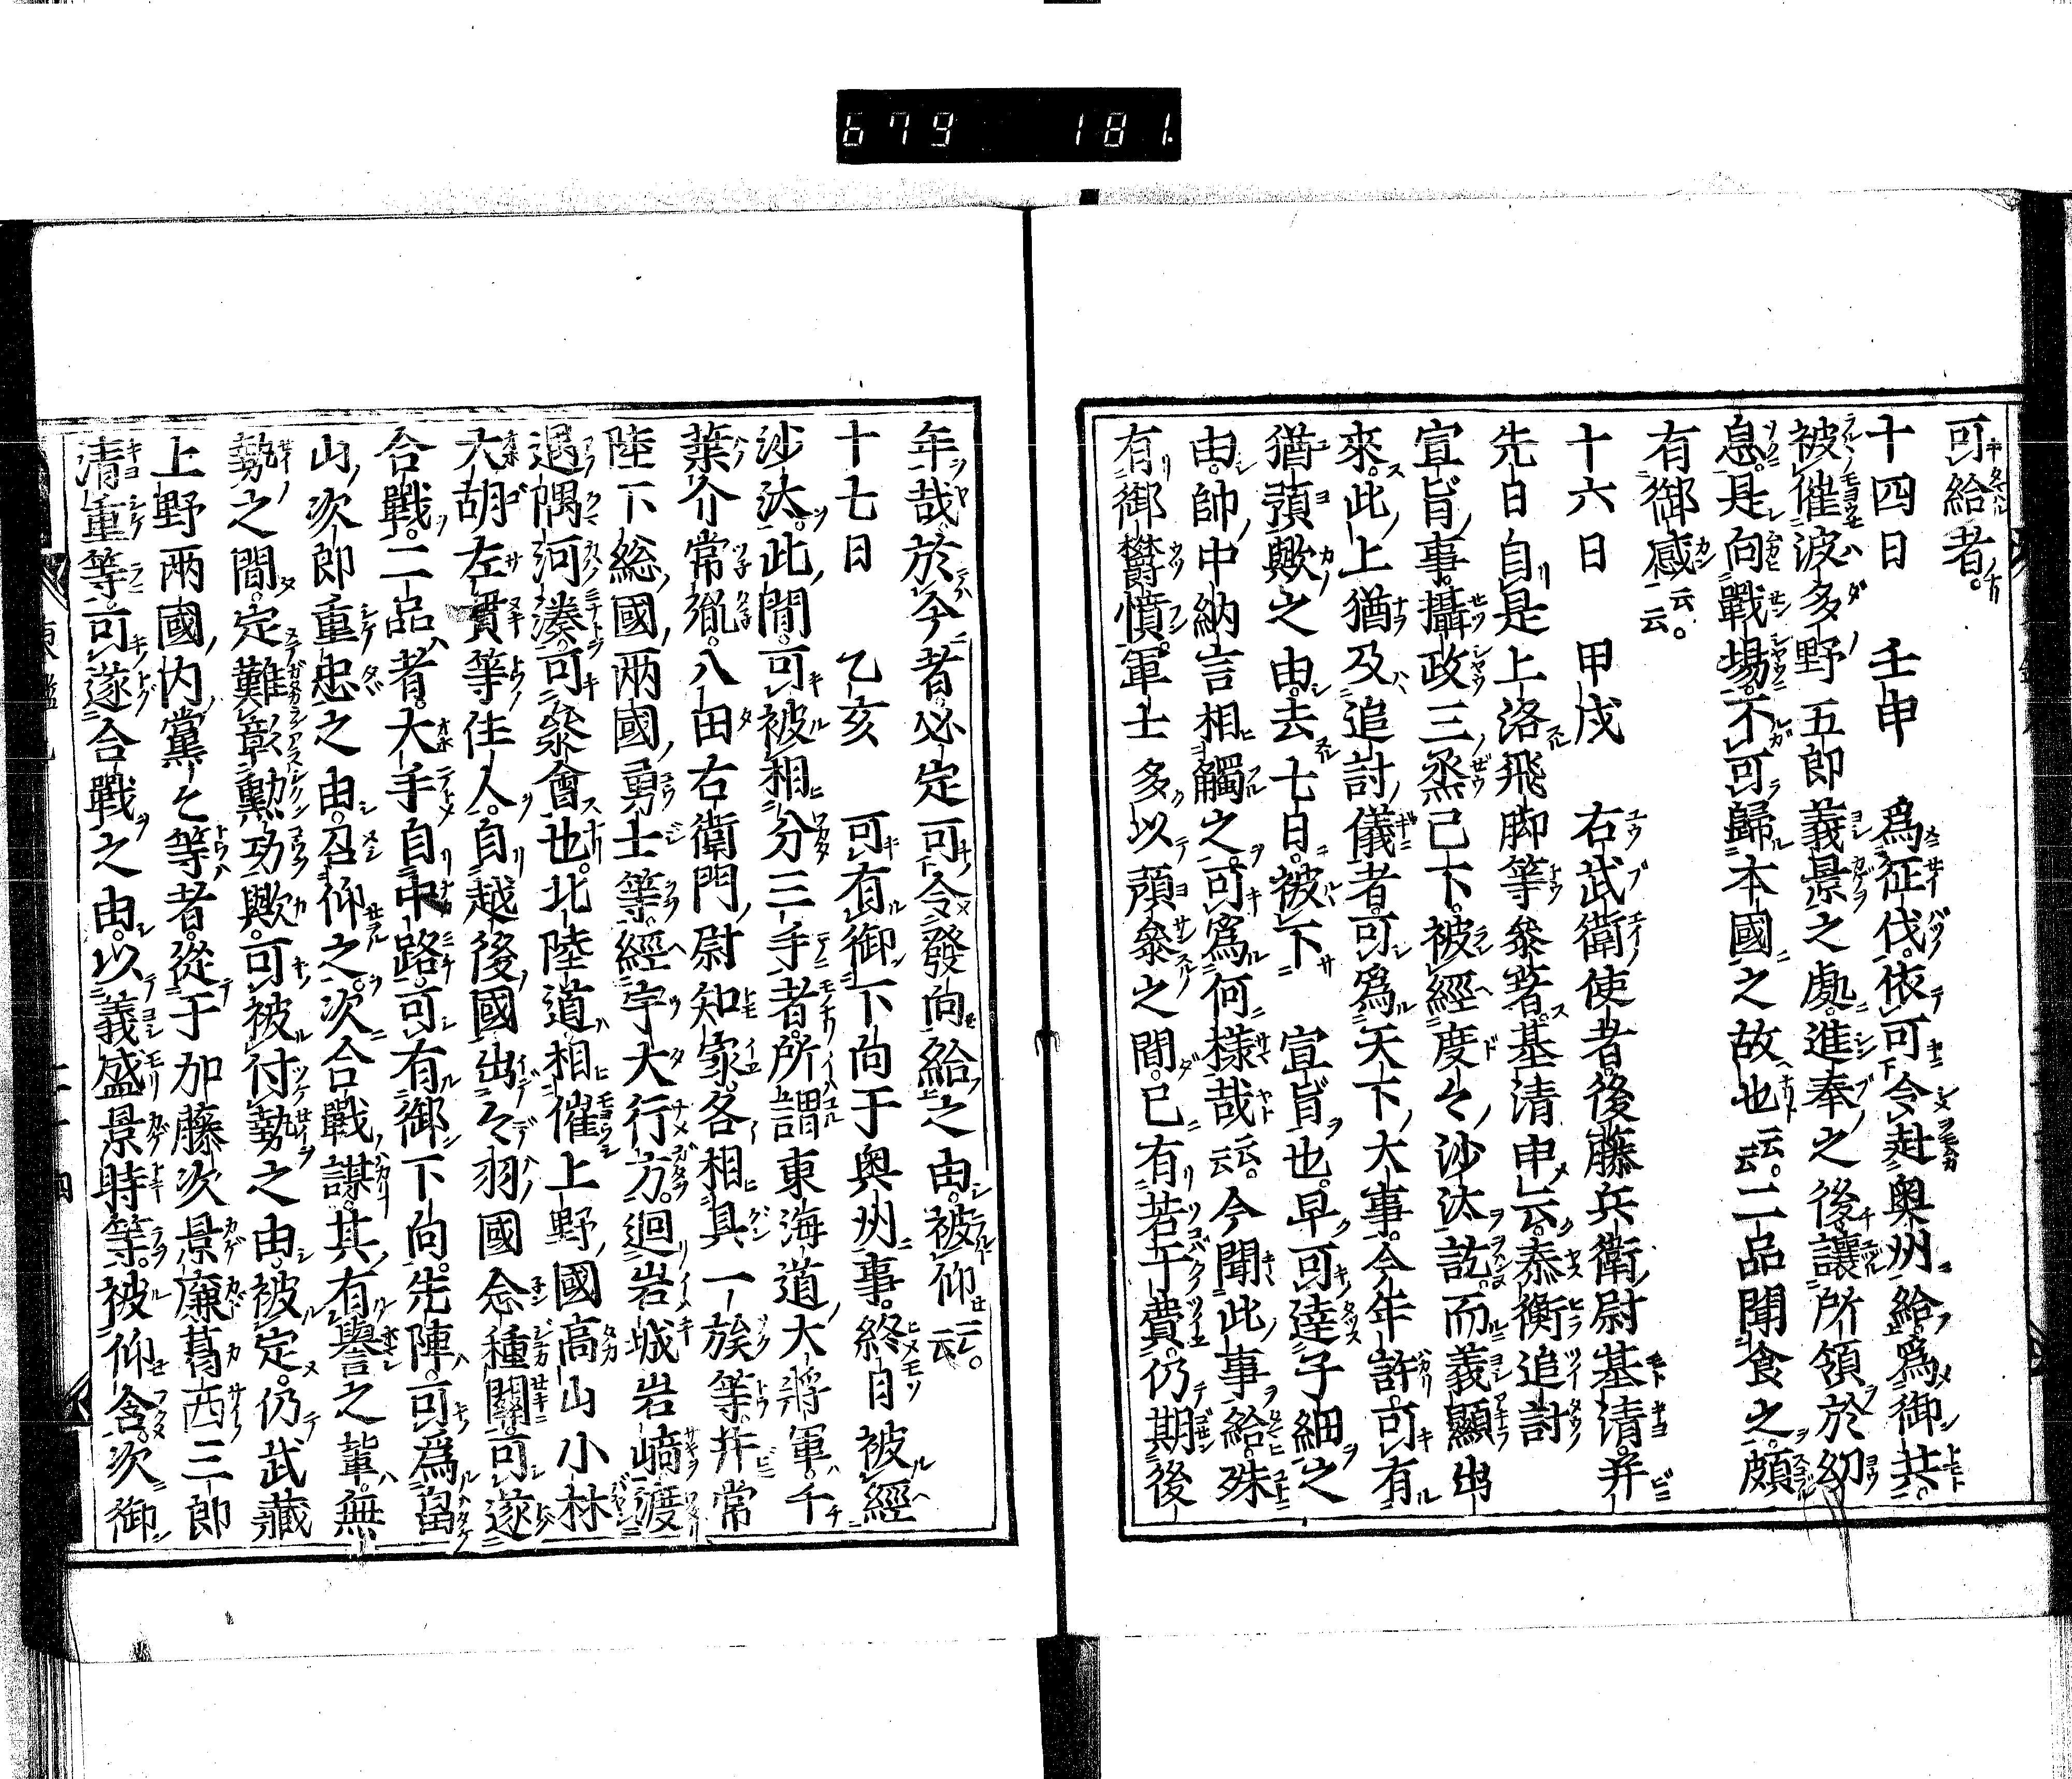 679 181.
可給者。
十四日 壬申 爲征伐。依可令赴奥州給爲御共。
被催波多野五郎義景之處。進奉之後讓所領於幼
息。是向戰場。不可歸本國之故也云云。二品聞食之。頗
有御感云云。
十六日 甲戌 右武衛使者。後藤兵衛尉基清。并
先日自是上洛飛脚等參著。基清申云。泰衡追討
宣旨事。攝政三烝已下。被經度々沙汰訖而義顯出
來。此上猶及追討儀者。可爲天下大事。今年許可有
猶預歟之由。去七日。被下 宣旨也。早可達子細之
由。帥中納言相觸之。可爲何樣哉云云。今聞此事給。殊
有御欝憤。軍士多以預參之間。已有若干費。仍期後
年哉。於今者必定可令發向給之由。被仰云云。
十七日 乙亥 可有御下向于奥州事。終日被經
沙汰。此間。可被相分三手者。所謂東海道大將軍。千
葉介常胤。八田右衛門尉知家。各相具一族等并常
陸下総國兩國勇士等。經宇大行方。迴岩城岩﨑渡
遇隅河湊。可參會也。北陸道相催上野國高山小林
大胡左貫等住人。自越後國出々羽國念種關。可遂
合戰。二品者。大手自中路。可有御下向。先陣。可爲畠
山次郎重忠之由。召仰之。次合戰謀。其有譽之輩。無
勢之間。定難彰勲功歟。可被付勢之由。被定。仍武藏
上野兩國内黨々等者。從于加藤次景廉葛西三郎
清重等。可遂合戰之由。以義盛景時等。被仰含。次御